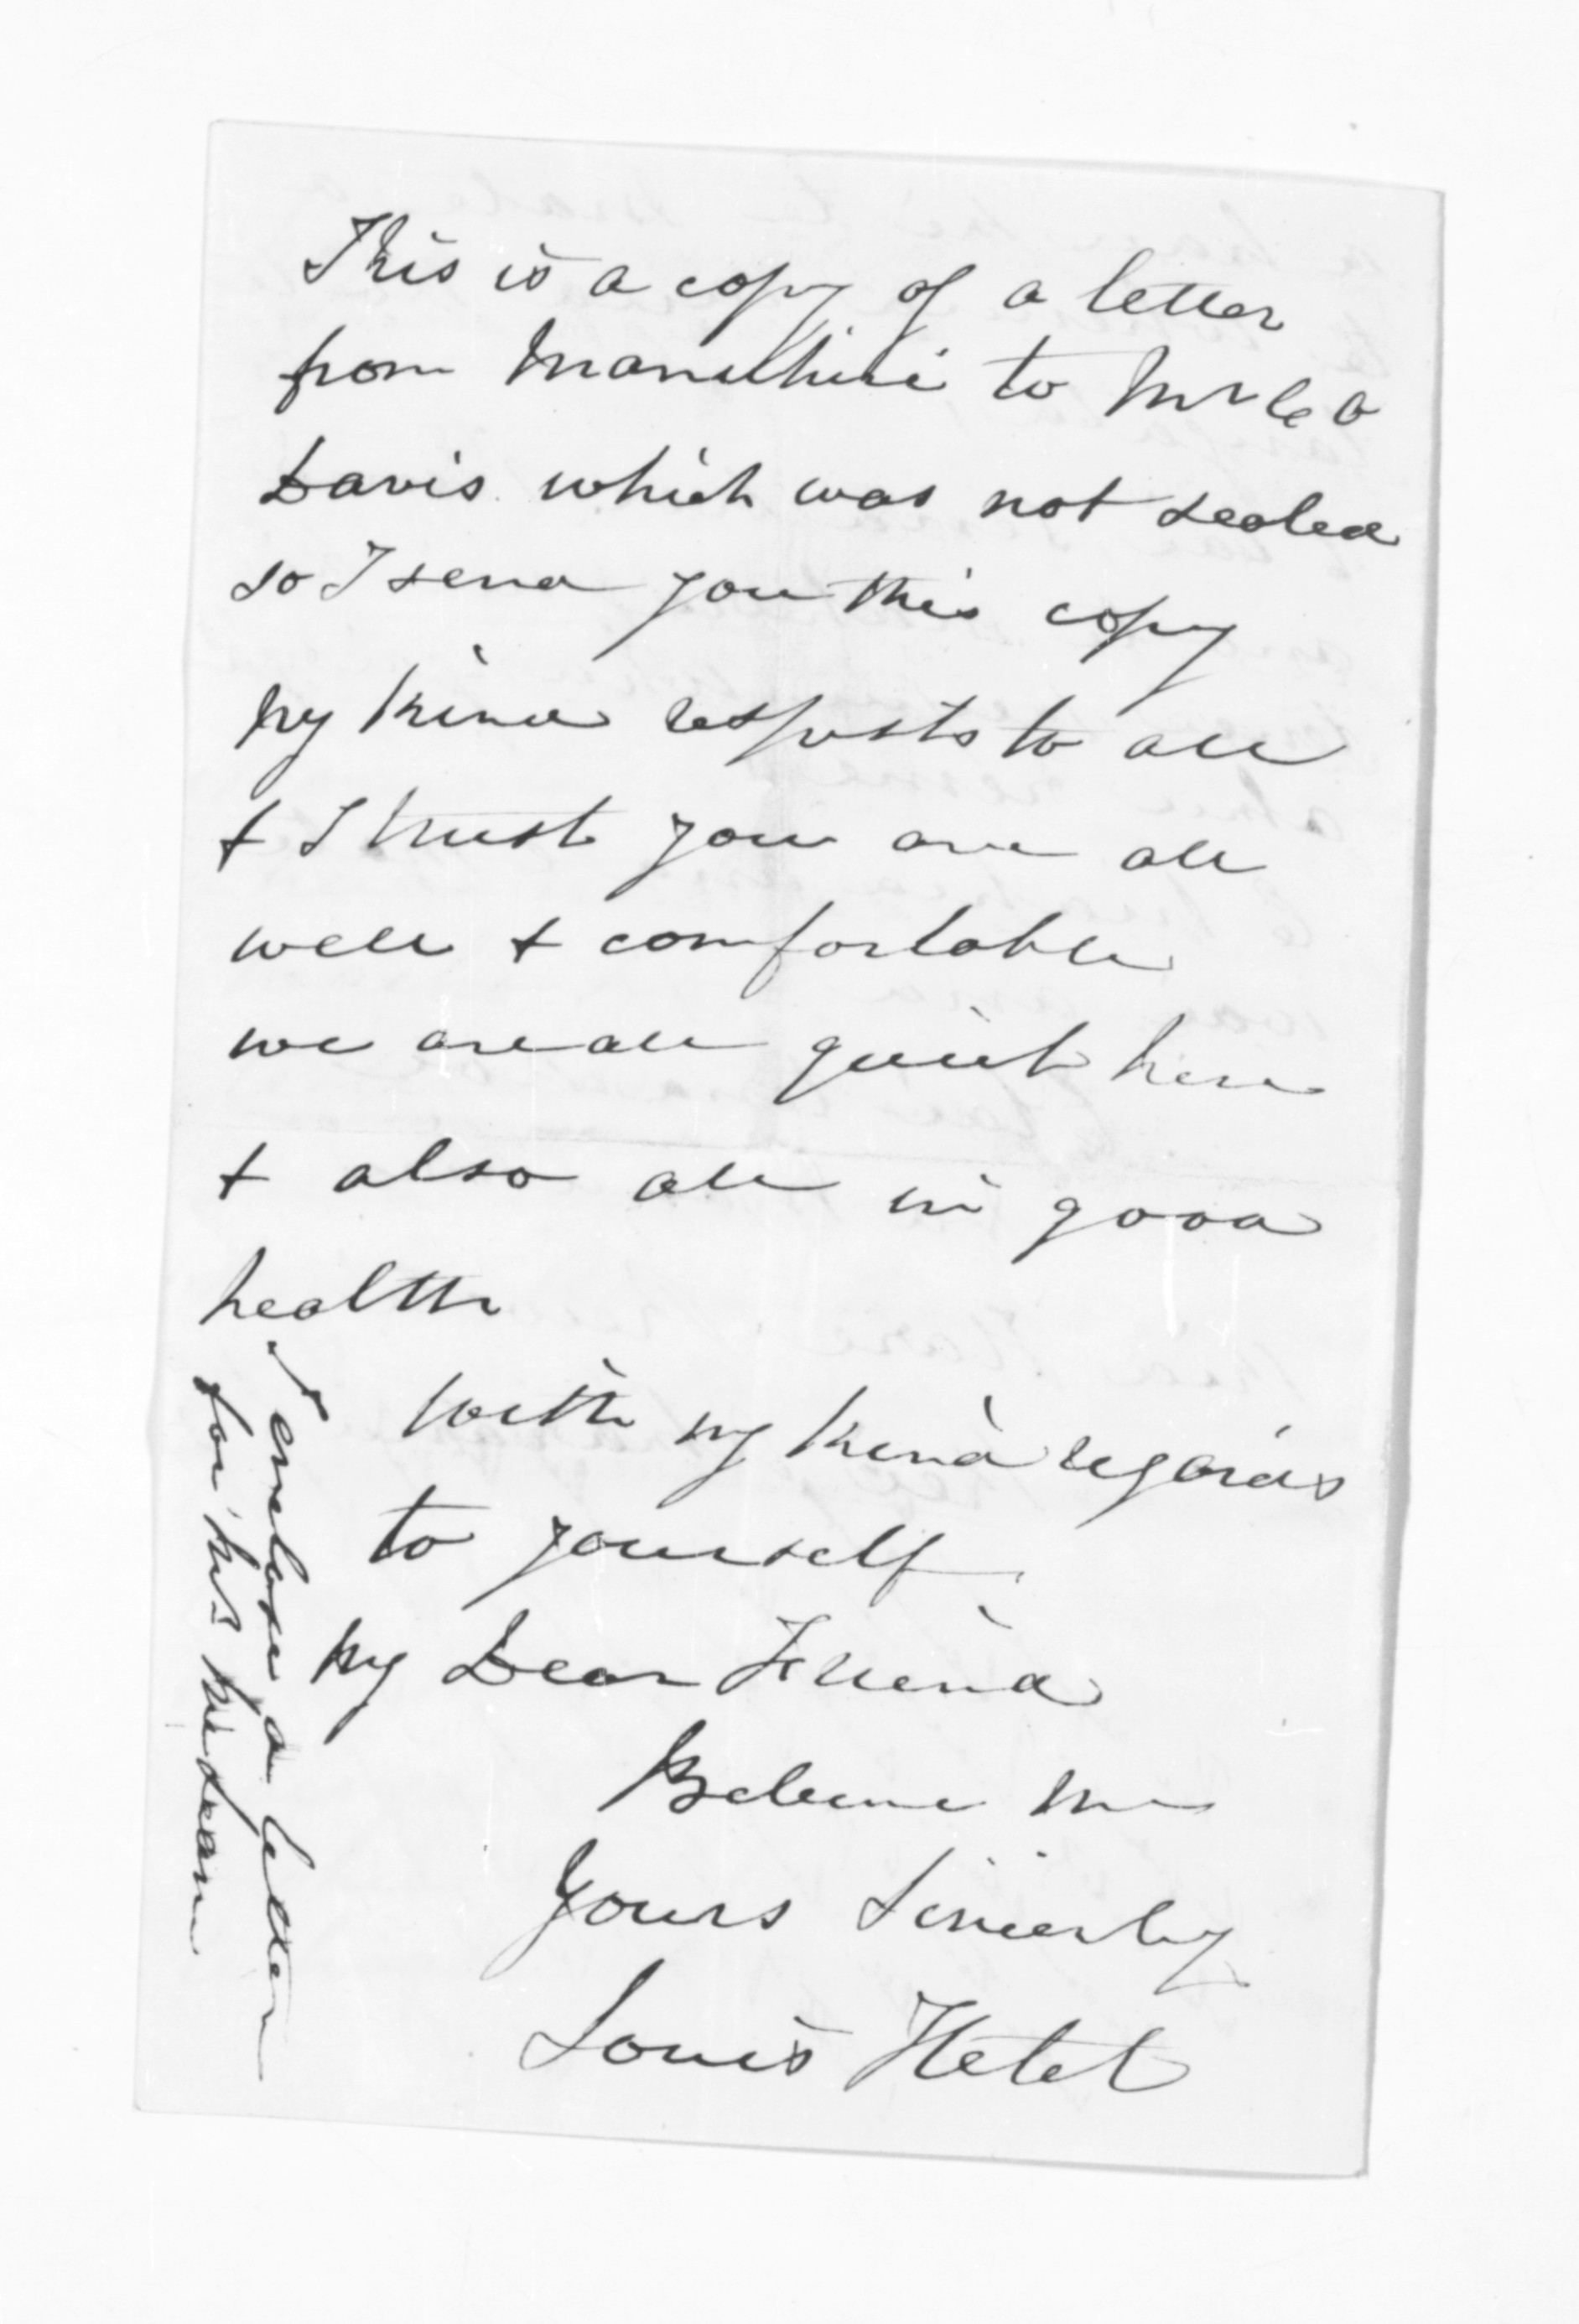 This is a copy of a letter
from Manuhiri to Mr C O
Davis which was not sealed
so I send you this copy
my kind respects to all
& I trust you are all
well & comfortable
we are all quiet here
& also all in good
health
with my kind regards
to yourself
my Dear Friend
Believe me
Yours Sincerly
Louis Hetet
I enclose a letter
for Mrs